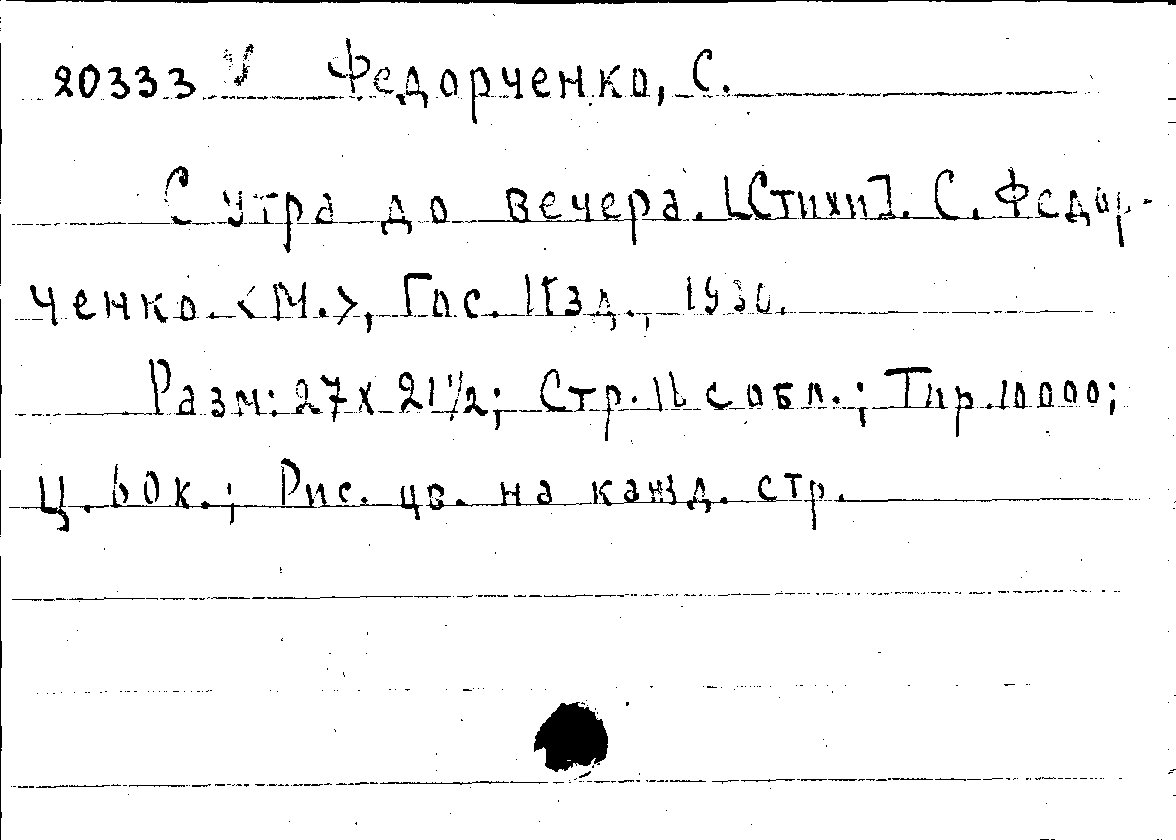 20333 V Федорченко, С.
С утра до вечера. [Стихи]. С. Федор-
ченко. <М.>, Гос. Изд., 1930.
Разм: 27 х 21 1/2; Стр. с обл.; Тир. 10000;
Ц. 60 к.; Рис. цв. на кажд. стр.